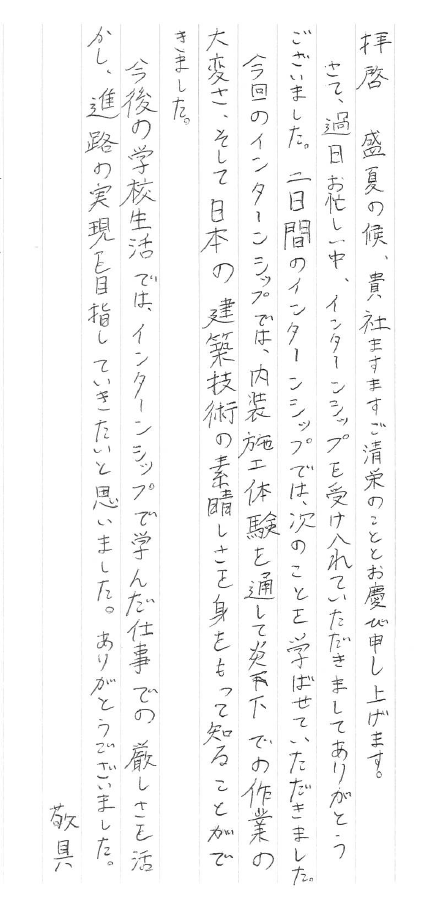 拝啓　盛夏の候、貴社ますますご清栄のこととお慶び申し上げます。
さて、過日お忙しい中、インターンシップを受け入れていただきましてありがとう
ございました。二日間のインターンシップでは、次のことを学ばせていただきました。
今回のインターンシップでは、内装施工体験を通して炎天下での作業の
大変さ、そして日本の建築技術の素晴しさを身をもって知ることがで
きました。
今後の学校生活では、インターンシップで学んだ仕事での厳しさを活
かし、進路の実現を目指していきたいと思いました。ありがとうございました。
敬具